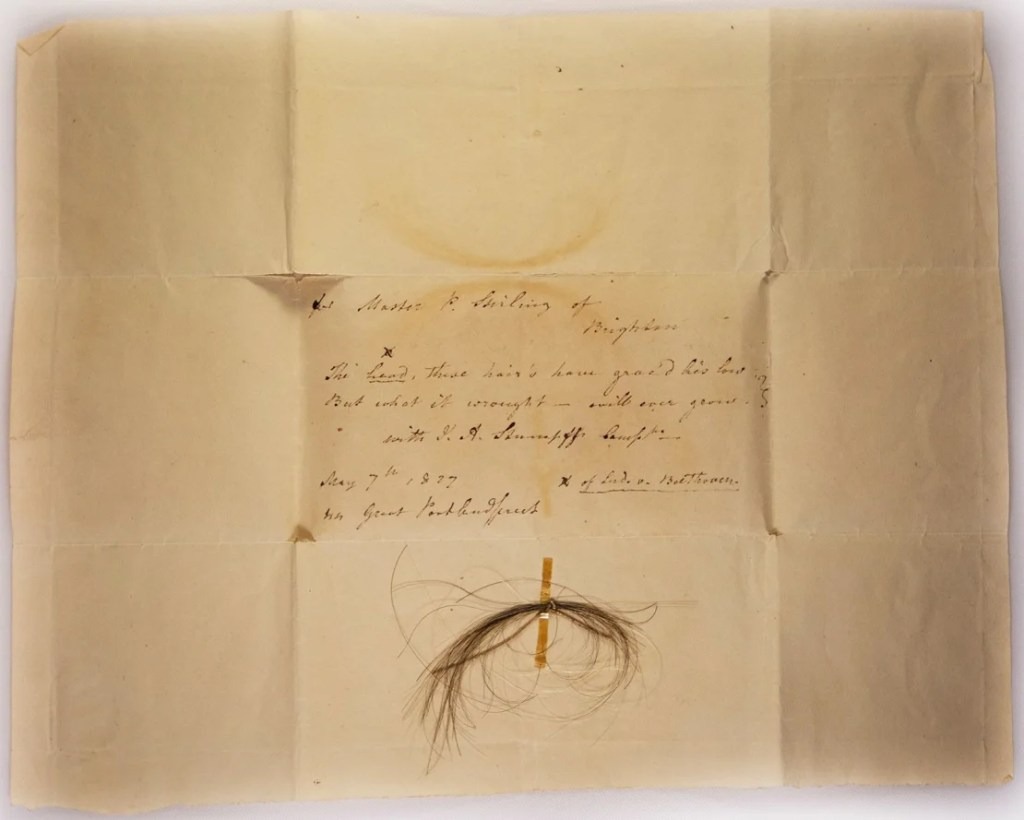 for Master P. Stirling of
Brighton
x
The head, these hair's have grac'd lies low
But what it wrought — will ever grow.
with J. A. Stumpff's Compts—
May 7th 1827
x of Lud. v. Beethoven.
Great Portlandstreet